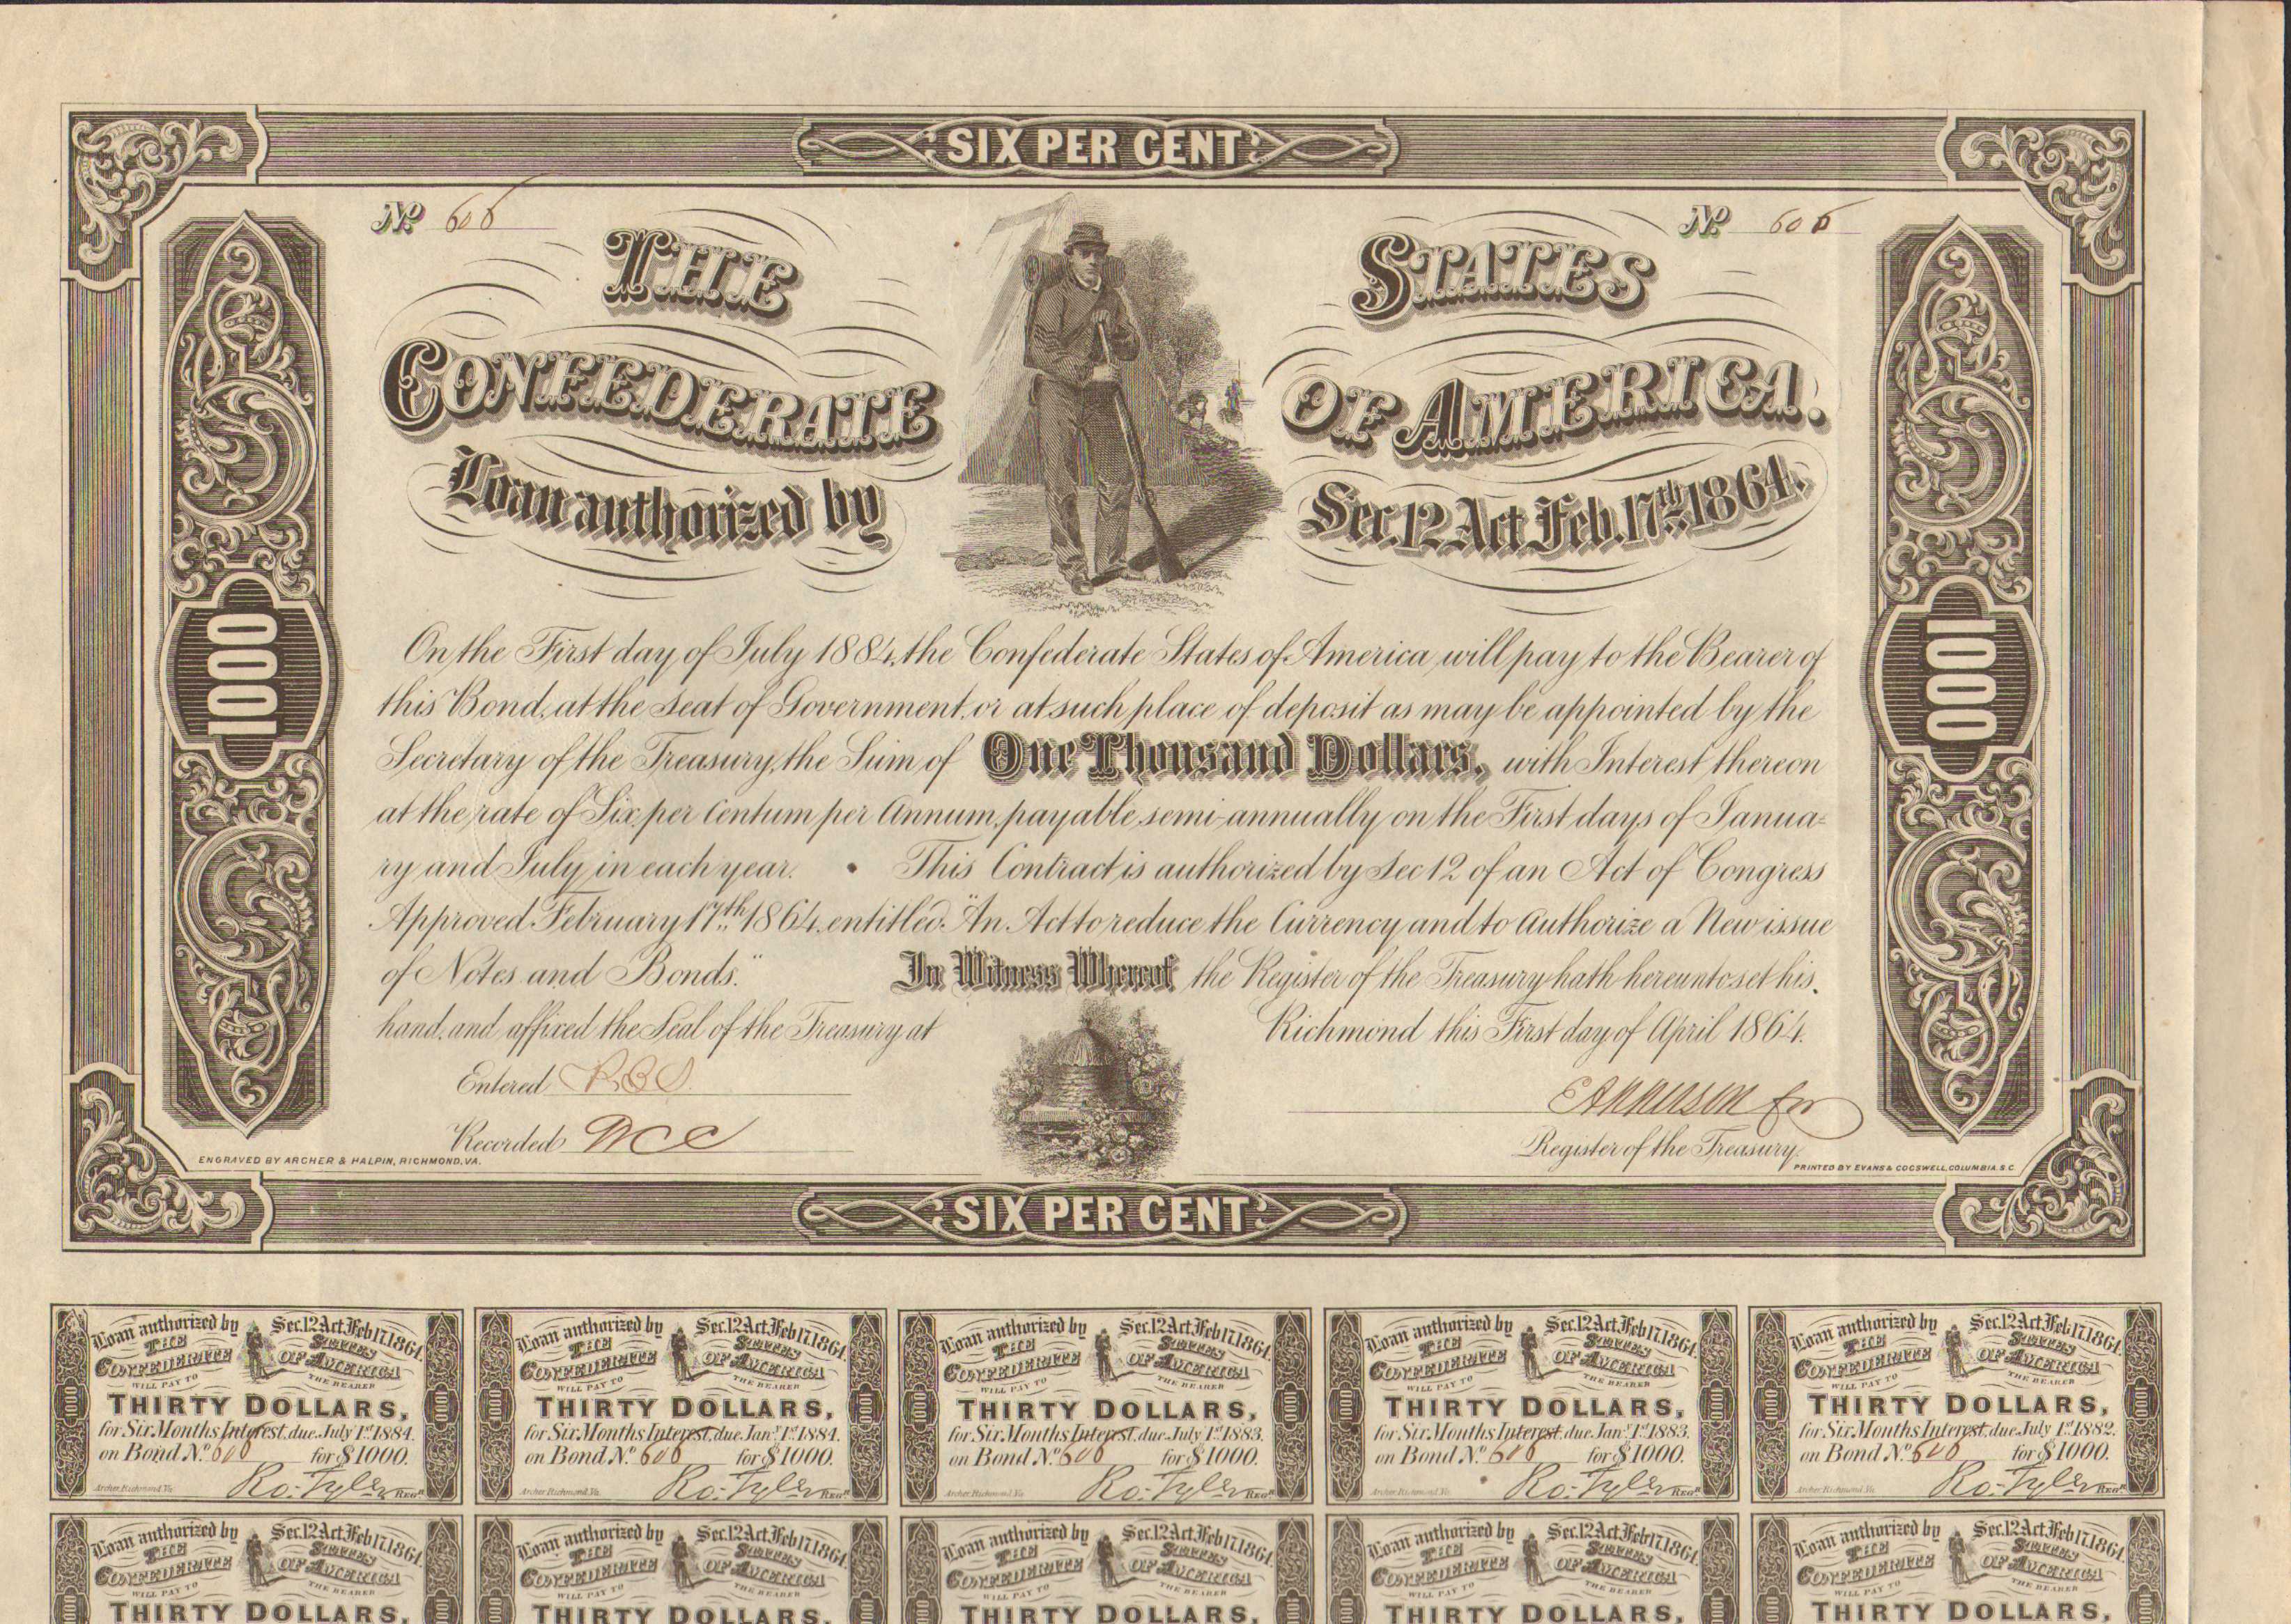 SIX PER CENT
No. 606
No. 606
THE
STATES
CONFEDERATE
OF AMERICA.
Loan authorized by
Sec. 12 Act Feb. 17th 1864.
1000
1000
On the First day of July 1884, the Confederate States of America will pay to the Bearer of
this Bond, at the seat of Government, or at such place of deposit as may be appointed by the
Secretary of the Treasury, the Sum of One Thousand Dollars, with Interest thereon
at the rate of Six per Centum per Annum, payable semi-annually on the First days of Janua-
ry and July in each year. • This Contract is authorized by Sec 12 of an Act of Congress
Approved February 17th 1864, entitled. "An Act to reduce the Currency and to Authorize a New issue
of Notes and Bonds." In Witness Whereof the Register of the Treasury hath hereunto set his
hand, and affixed the Seal of the Treasury at Richmond this First day of April 1864.
Entered
Recorded
Register of the Treasury.
ENGRAVED BY ARCHER & HALPIN, RICHMOND, VA.
PRINTED BY EVANS & COGSWELL, COLUMBIA S.C.
SIX PER CENT
Loan authorized by Sec. 12 Act Feb 17. 1864.
THE STATES
CONFEDERATE OF AMERICA
WILL PAY TO THE BEARER
THIRTY DOLLARS,
for Six Months Interest, due July 1st 1884.
on Bond No. 606 for $1000.
Archer Richmond Va.
Ro: Tyler REGR
1000
1000
Loan authorized by Sec. 12 Act Feb 17. 1864.
THE STATES
CONFEDERATE OF AMERICA
WILL PAY TO THE BEARER
THIRTY DOLLARS,
for Six Months Interest, due Jany 1st 1884.
on Bond No. 606 for $1000.
Archer Richmond Va.
Ro: Tyler REGR
1000
1000
Loan authorized by Sec. 12 Act Feb 17. 1864.
THE STATES
CONFEDERATE OF AMERICA
WILL PAY TO THE BEARER
THIRTY DOLLARS,
for Six Months Interest, due July 1st 1883.
on Bond No. 606 for $1000.
Archer Richmond Va.
Ro: Tyler REGR
1000
1000
Loan authorized by Sec. 12 Act Feb 17. 1864.
THE STATES
CONFEDERATE OF AMERICA
WILL PAY TO THE BEARER
THIRTY DOLLARS,
for Six Months Interest, due Jany 1st 1883.
on Bond No. 606 for $1000.
Archer Richmond Va.
Ro: Tyler REGR
1000
1000
Loan authorized by Sec. 12 Act Feb 17. 1864.
THE STATES
CONFEDERATE OF AMERICA
WILL PAY TO THE BEARER
THIRTY DOLLARS,
for Six Months Interest, due July 1st 1882.
on Bond No. 606 for $1000.
Archer Richmond Va.
Ro: Tyler REGR
1000
1000
Loan authorized by Sec. 12 Act Feb 17. 1864.
THE STATES
CONFEDERATE OF AMERICA
WILL PAY TO THE BEARER
THIRTY DOLLARS,
Loan authorized by Sec. 12 Act Feb 17. 1864.
THE STATES
CONFEDERATE OF AMERICA
WILL PAY TO THE BEARER
THIRTY DOLLARS,
Loan authorized by Sec. 12 Act Feb 17. 1864.
THE STATES
CONFEDERATE OF AMERICA
WILL PAY TO THE BEARER
THIRTY DOLLARS,
Loan authorized by Sec. 12 Act Feb 17. 1864.
THE STATES
CONFEDERATE OF AMERICA
WILL PAY TO THE BEARER
THIRTY DOLLARS,
Loan authorized by Sec. 12 Act Feb 17. 1864.
THE STATES
CONFEDERATE OF AMERICA
WILL PAY TO THE BEARER
THIRTY DOLLARS,